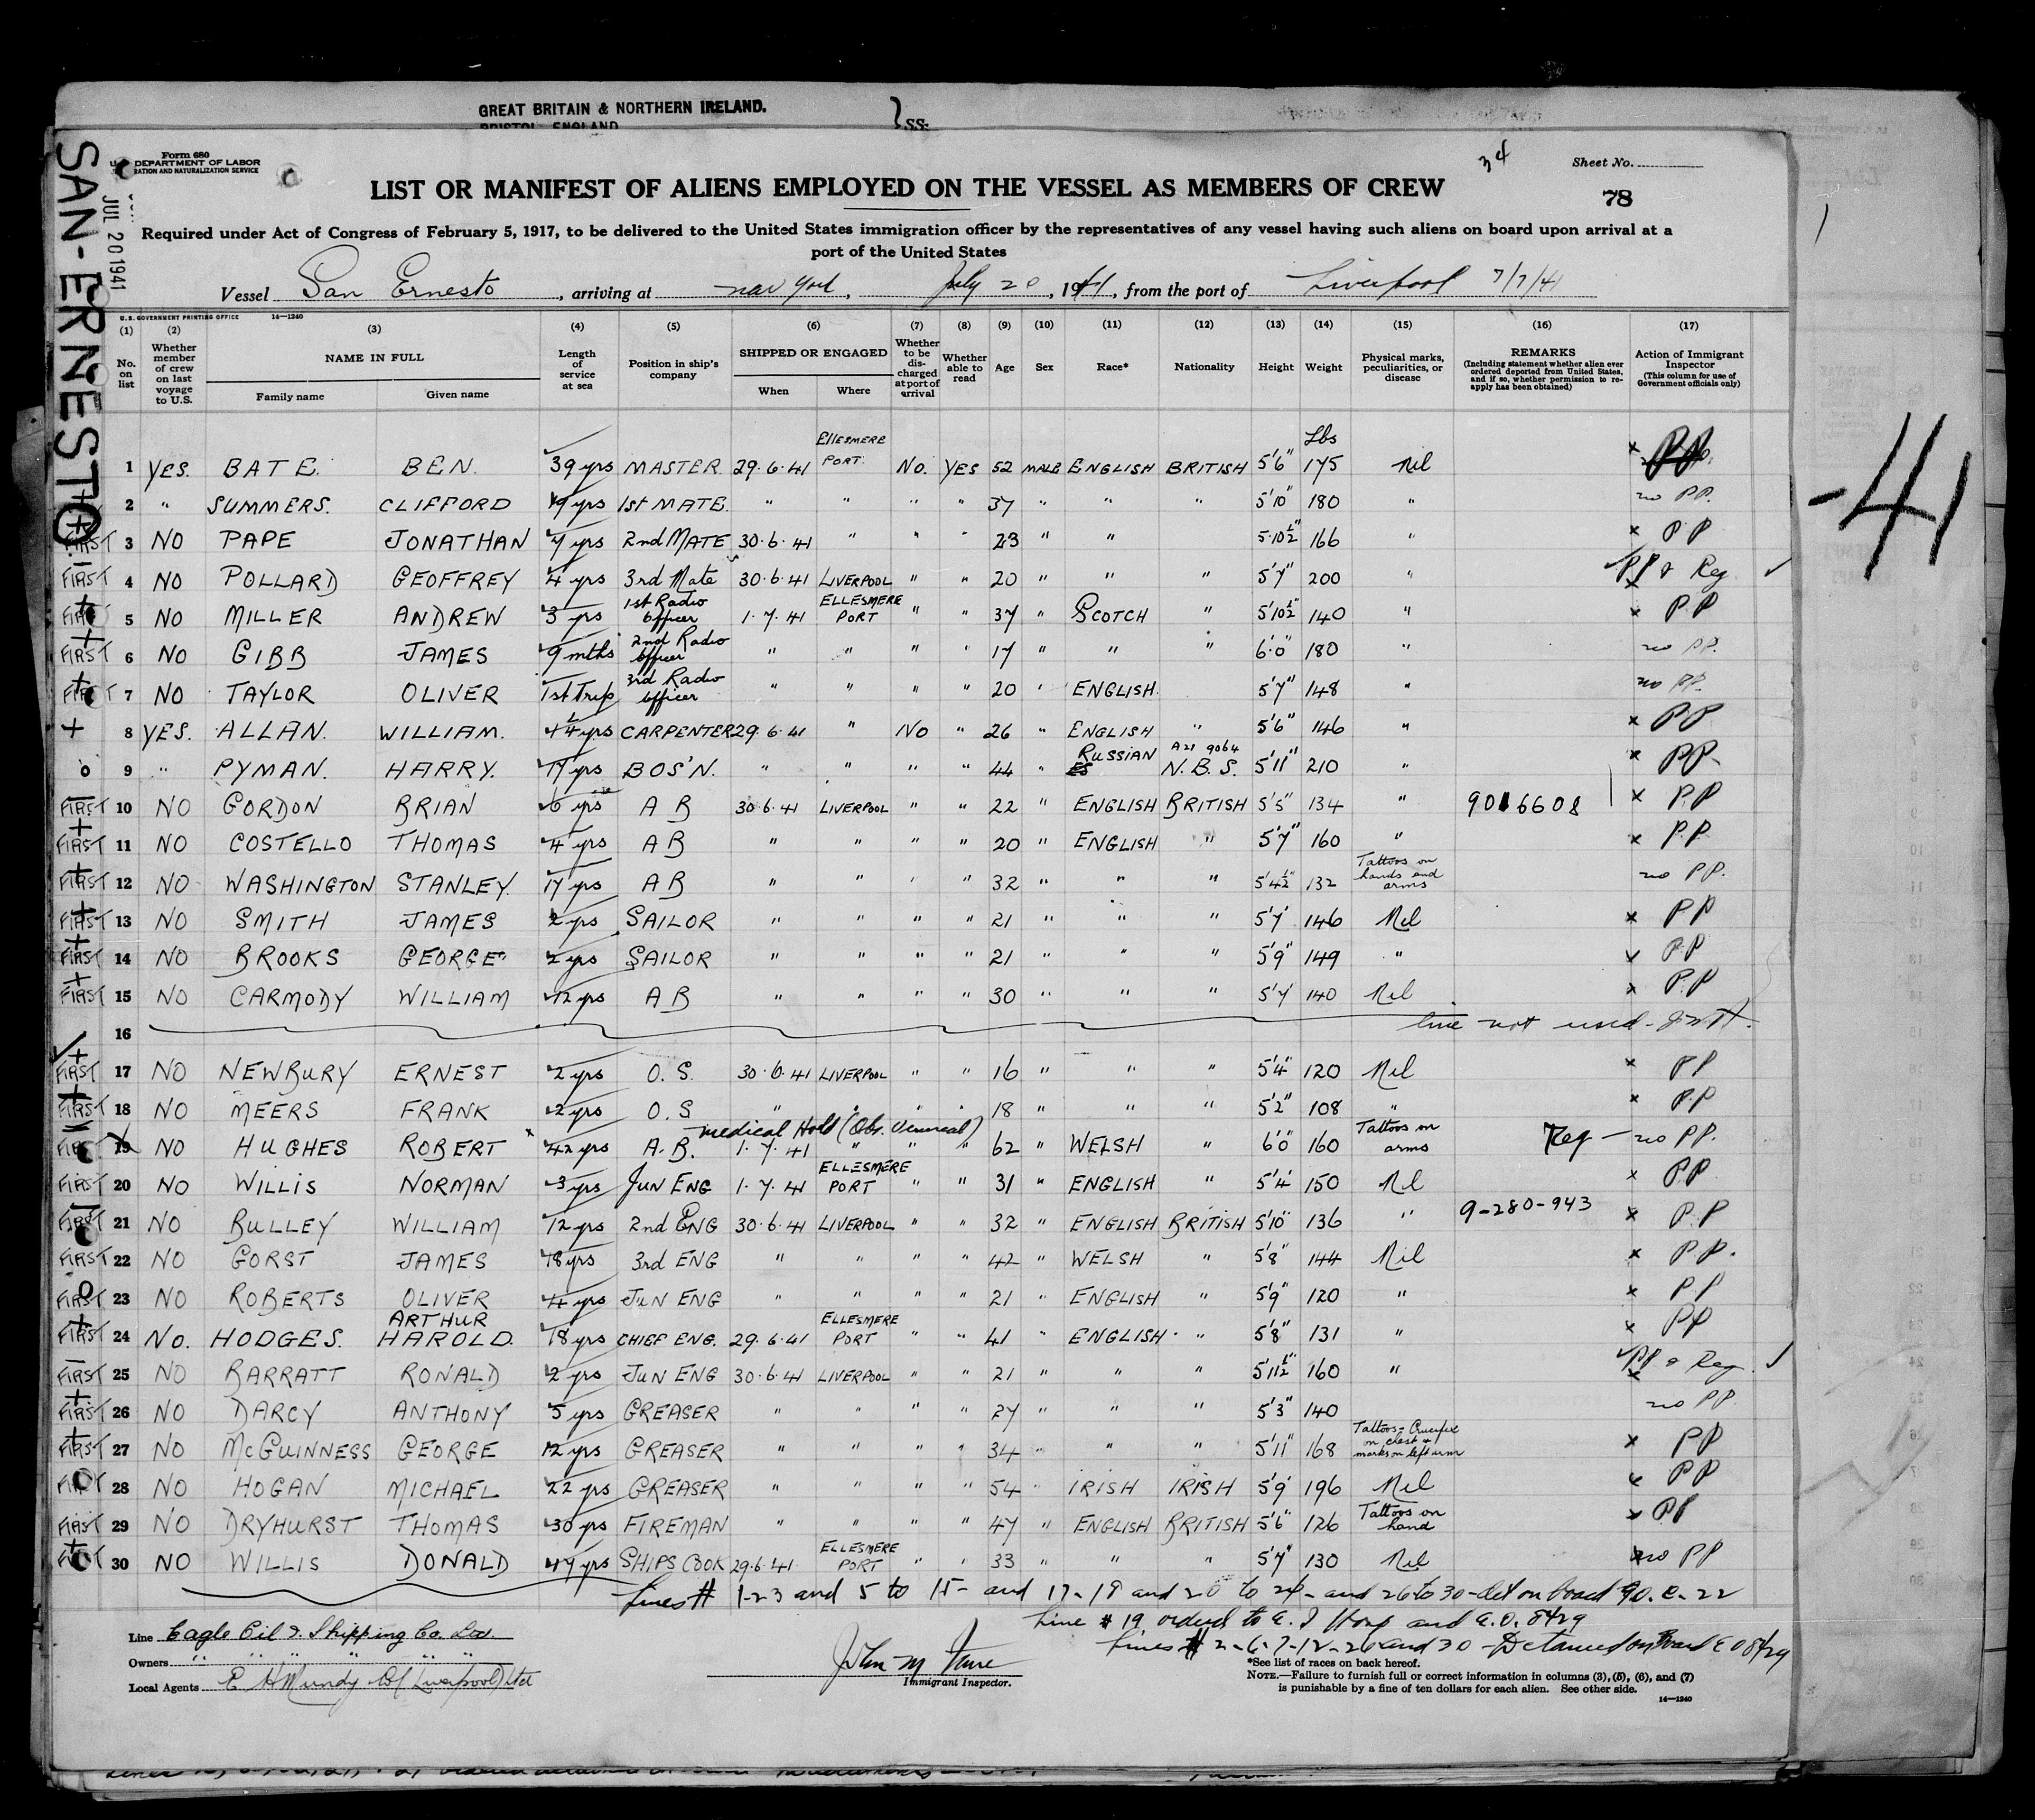 GREAT BRITAIN & NORTHERN IRELAND. } SS:
BRISTOL, ENGLAND
SAN-ERNESTO.
JUL 20 1941
Form 680
DEPARTMENT OF LABOR
RATION AND NATURALIZATION SERVICE
34
Sheet No.
78
LIST OR MANIFEST OF ALIENS EMPLOYED ON THE VESSEL AS MEMBERS OF CREW
Required under Act of Congress of February 5, 1917, to be delivered to the United States immigration officer by the representatives of any vessel having such aliens on board upon arrival at a
port of the United States
Vessel San Ernesto, arriving at New York, July 20, 1941, from the port of Liverpool 7/7/41
U. S. GOVERNMENT PRINTING OFFICE 14—1240
(1) (2) (3) (4) (5) (6) (7) (8) (9) (10) (11) (12) (13) (14) (15) (16) (17)
No. on list
Whether member of crew on last voyage to U.S.
NAME IN FULL
Family name Given name
Length of service at sea
Position in ship's company
SHIPPED OR ENGAGED
When Where
Whether to be discharged at port of arrival
Whether able to read
Age
Sex
Race*
Nationality
Height
Weight
Physical marks, peculiarities, or disease
REMARKS
(Including statement whether alien ever ordered deported from United States, and if so, whether permission to reapply has been obtained)
Action of Immigrant Inspector
(This column for use of Government officials only)
Lbs
1 YES. BATE. BEN. 39 yrs MASTER 29.6.41 ELLESMERE PORT. No. YES 52 MALE ENGLISH BRITISH 5'6" 175 Nil x PP.
2 " SUMMERS. CLIFFORD 19 yrs 1st MATE. " " " " 37 " " " 5'10" 180 " no PP.
FIRST 3 NO PAPE JONATHAN 7 yrs 2nd MATE 30.6.41 " " " 23 " " 5'10½" 166 " x PP
FIRST 4 NO POLLARD GEOFFREY 4 yrs 3rd Mate 30.6.41 LIVERPOOL " " 20 " " " 5'7" 200 " PP & Reg ✓
FIRST 5 NO MILLER ANDREW 3 yrs 1st Radio officer 1.7.41 ELLESMERE PORT " " 37 " SCOTCH " 5'10½" 140 " x PP
FIRST 6 NO GIBB JAMES 9 mths 2nd Radio officer " " " " 17 " " " 6'0" 180 " no PP.
FIRST 7 NO TAYLOR OLIVER 1st Trip 3rd Radio officer " " " " 20 " ENGLISH. 5'7" 148 " no PP.
+ 8 YES. ALLAN. WILLIAM. 4½ yrs CARPENTER 29.6.41 " NO " 26 " ENGLISH " 5'6" 146 " x PP
o 9 " PYMAN. HARRY. 17 yrs BOS'N. " " " " 44 " RUSSIAN N.B.S. 5'11" 210 " x PP
FIRST 10 NO GORDON BRIAN 6 yrs A B 30.6.41 LIVERPOOL " " 22 " ENGLISH BRITISH 5'5" 134 " 9016608 x P.P
FIRST 11 NO COSTELLO THOMAS 4 yrs A B " " " " 20 " ENGLISH " 5'7" 160 " x P.P.
FIRST 12 NO WASHINGTON STANLEY. 17 yrs A B " " " " 32 " " " 5'4½" 132 Tattoos on hands and arms no PP.
FIRST 13 NO SMITH JAMES 2 yrs SAILOR " " " " 21 " " " 5'7" 146 Nil x PP
FIRST 14 NO BROOKS GEORGE 2 yrs SAILOR " " " " 21 " " " 5'9" 149 " x PP
FIRST 15 NO CARMODY WILLIAM 12 yrs A B " " " " 30 " " " 5'7" 140 Nil x P.P
16 line not used
FIRST 17 NO NEWBURY ERNEST 2 yrs O.S. 30.6.41 LIVERPOOL " " 16 " " " 5'4" 120 Nil x PP
FIRST 18 NO MEERS FRANK 2 yrs O.S " " " " 18 " " " 5'2" 108 " x PP
medical Hold (Obs. Venereal)
FIRST 19 NO HUGHES ROBERT 42 yrs A.B. 1.7.41 " " " 62 " WELSH " 6'0" 160 Tattoos on arms Reg — no PP.
FIRST 20 NO WILLIS NORMAN 3 yrs JUN ENG 1.7.41 ELLESMERE PORT " " 31 " ENGLISH " 5'4" 150 Nil x PP
FIRST 21 NO BULLEY WILLIAM 12 yrs 2nd ENG 30.6.41 LIVERPOOL " " 32 " ENGLISH BRITISH 5'10" 136 " 9-280-943 x P.P
FIRST 22 NO GORST JAMES 18 yrs 3rd ENG " " " " 42 " WELSH " 5'8" 144 Nil x P.P.
FIRST 23 NO ROBERTS OLIVER 4 yrs JUN ENG " " " " 21 " ENGLISH " 5'9" 120 " x PP
FIRST 24 NO. HODGES. ARTHUR HAROLD. 18 yrs CHIEF ENG. 29.6.41 ELLESMERE PORT " " 41 " ENGLISH " 5'8" 131 " x PP
FIRST 25 NO BARRATT RONALD 2 yrs JUN ENG 30.6.41 LIVERPOOL " " 21 " " " 5'11½" 160 " PP & Reg ✓
FIRST 26 NO DARCY ANTHONY 5 yrs GREASER " " " " 27 " " " 5'3" 140 no PP.
FIRST 27 NO McGUINNESS GEORGE 12 yrs GREASER " " " " 34 " " " 5'11" 168 Tattoos - Crucifix on chest & marks on left arm x PP
FIRST 28 NO HOGAN MICHAEL 22 yrs GREASER " " " " 54 " IRISH IRISH 5'9" 196 Nil x PP
FIRST 29 NO DRYHURST THOMAS 30 yrs FIREMAN " " " " 47 " ENGLISH BRITISH 5'6" 126 Tattoos on hand x PP
FIRST 30 NO WILLIS DONALD 17 yrs SHIPS COOK 29.6.41. ELLESMERE PORT " " 33 " " " 5'7" 130 Nil no PP
Lines # 1-2-3 and 5 to 15- and 17-18 and 20 to 24- and 26 to 30 - det on board
Line # 19 ordered to E. I Hosp and E.O. 8429
Lines # 2-6-7-12-26 and 30 - Detained on Board EO 8429
Line Eagle Oil & Shipping Co. Ltd.
Owners " " " " "
Local Agents E H Mundy Co (Liverpool) Ltd
John M
Immigrant Inspector.
*See list of races on back hereof.
NOTE.—Failure to furnish full or correct information in columns (3), (5), (6), and (7)
is punishable by a fine of ten dollars for each alien. See other side.
14—1240
-41